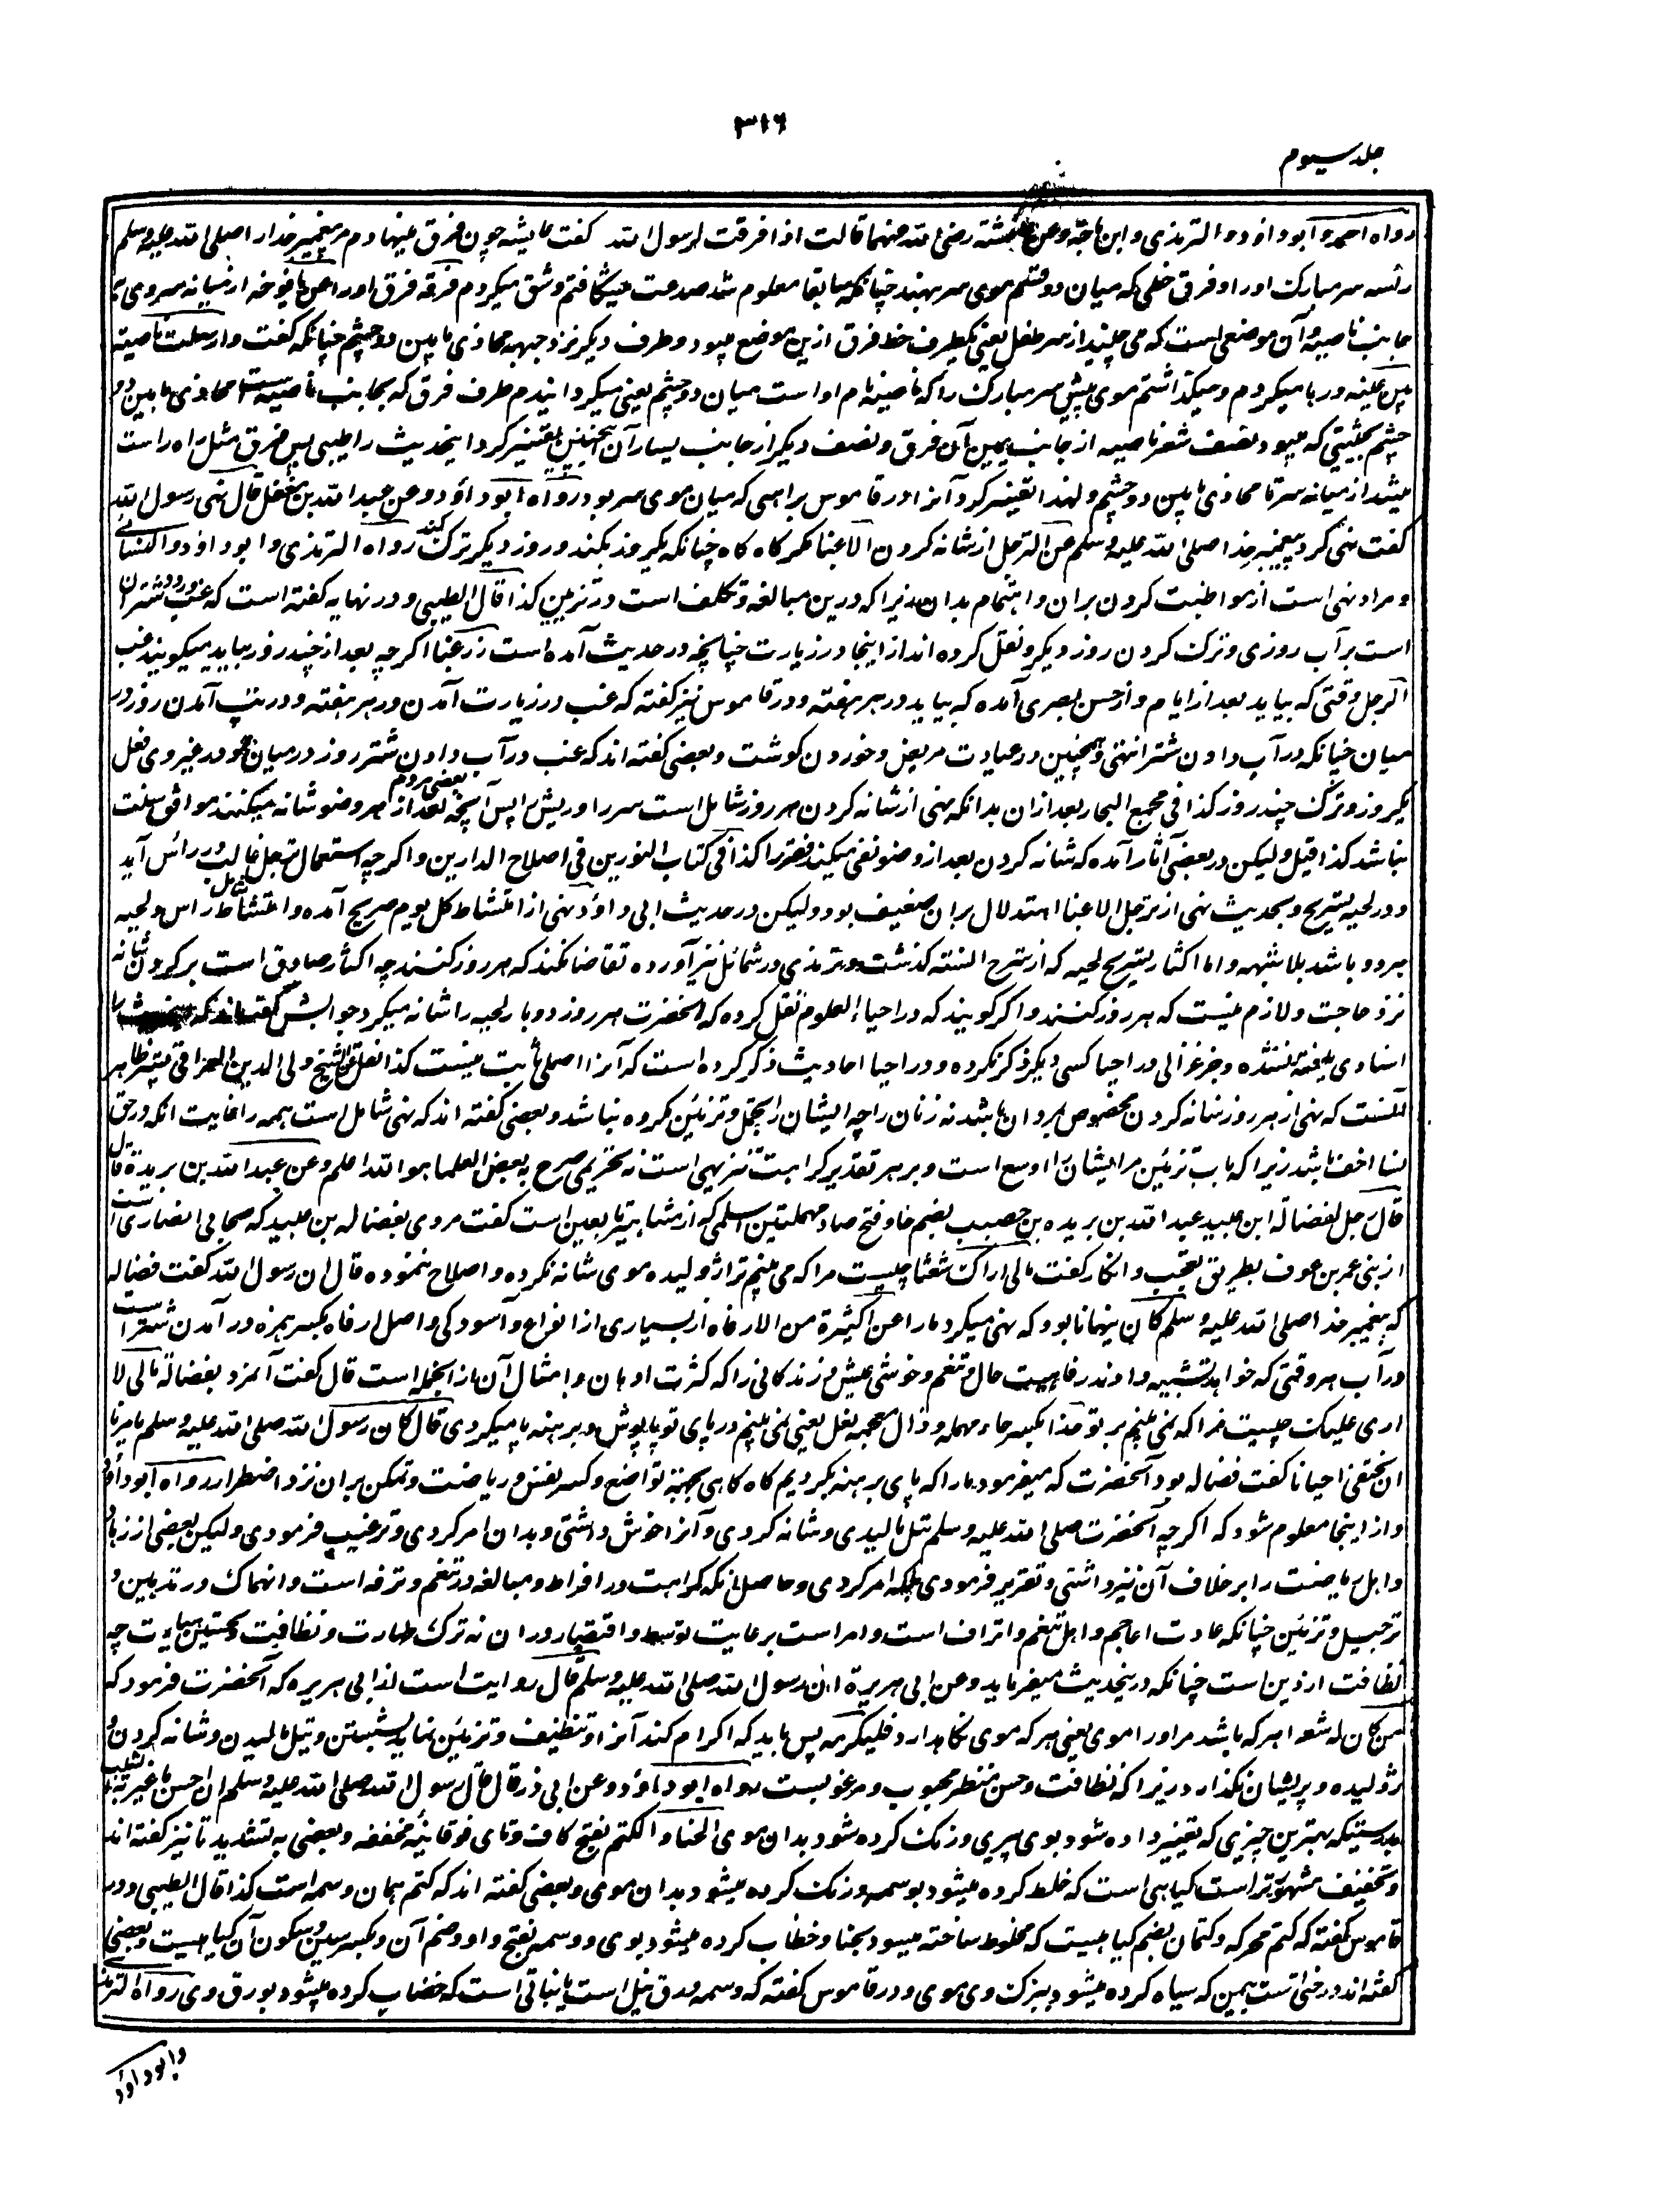 ۳۱۶
جلد سیوم
رواه احمد و ابو داؤد و الترمذی و ابن ماجة و عن عایشة رضی الله عنهما قالت اذا فرقت لرسول الله کفت عایشه چون فرق مینهادم مر پیغمبر خدا را صلی الله علیه وسلم
رأسه سر مبارک او را و فرق خطی که میان دو قسم موی سر بنهند چنانکه سابقا معلوم شد صدعت میشکافتم و شق میکردم فرقه فرق او را عن یافوخه از میانه سر وی
جانب ناصیه و آن موضعی است که می جنبد از سر طفل یعنی یکطرف خط فرق ازین موضع میبود و طرف دیکر نزد جبهه محاذی ما بین دو چشم چنانکه کفت و ارسلت ناصیته
بین عینیه و رها میکردم و میکذاشتم موی پیش سر مبارک را که ناصیه نام او است میان دو چشم یعنی میکردانیدم طرف فرق که بجانب ناصیه است محاذی ما بین دو
چشم بحیثیتی که میبود نصف شعر ناصیه از جانب یمین آن فرق و نصف دیکر از جانب یسار آن همچنین تفسیر کرد اینحدیث را طیبی پس فرق مثل راه راست
میشد از میانه سر تا محاذی ما بین دو چشم و لهذا تفسیر کرد آنرا در قاموس براهی که میان موی سر بود رواه ابو داؤد و عن عبد الله بن مغفل قال نهی رسول الله
کفت نهی کرد پیغمبر خدا صلی الله علیه وسلم عن الترجل از شانه کردن الا غبا مکر کاه کاه چنانکه یکروز بکند و روز دیکر ترک کند رواه الترمذی و ابو داؤد و النسائی
و مراد نهی است از مواظبت کردن بران و اهتمام بدان زیرا که درین مبالغه و تکلف است در تزیین کذا قال الطیبی و در نهایه کفته است که غب ورود شتران
است بر آب روزی و ترک کردن روز دیکر و نقل کرده اند از اینجا در زیارت چنانچه در حدیث آمده است زر غبا اکر چه بعد از چند روز بیاید میکویند غب
الرجل وقتی که بیاید بعد از ایام و از حسن بصری آمده که بیاید در هر هفته و در قاموس نیز کفته که غب در زیارت آمدن در هر هفته و در تب آمدن روز در
میان چنانکه در آب دادن شتر انتهی و همچنین در عیادت مریض و خوردن کوشت و بعضی کفته اند که غب در آب دادن شتر روز در میان بود و در غیر وی فعل
یکروز و ترک چند روز کذا فی مجمع البحار بعد ازان بدانکه نهی از شانه کردن هر روز شامل است سر را و ریش را پس آنچه بعضی مردم بعد از هر وضو شانه میکنند موافق سنت
نباشد کذا قیل و لیکن در بعضی آثار آمده که شانه کردن بعد از وضو نفی میکند فقر را کذا فی کتاب النورین فی اصلاح الدارین و اکر چه استعمال ترجل غالب در رأس آید
و در لحیه تسریح و بحدیث نهی از ترجل الا غبا استدلال بران ضعیف بود و لیکن در حدیث ابی داؤد نهی از امتشاط کل یوم صریح آمده و امتشاط شامل راس و لحیه
هر دو باشد بلا شبهه و اما اکثار تسریح لحیه که از شرح السنة کذشت و ترمذی در شمائل نیز آورده تقاضا نکند که هر روز کنند چه اکثار صادق است بر کردن شانه
نزد حاجت و لازم نیست که هر روز کنند و اکر کویند که در احیاء العلوم نقل کرده که آنحضرت هر روز دو بار لحیه را شانه میکرد جوابش کفته اند که
اسنادی یافته نشده و جز غزالی در احیا کسی دیکر ذکر نکرده و در احیا احادیث ذکر کرده است که آنرا اصلی ثابت نیست کذا نقل عن الشیخ ولی الدین العراقی نیز ظاهر
آنست که نهی از هر روز شانه کردن مخصوص بمردان باشد نه زنان را چه ایشان را تجمل و تزئین مکروه نباشد و بعضی کفته اند که نهی شامل است همه را غایت آنکه در حق
نسا اخف باشد زیرا که باب تزئین مر ایشان را اوسع است و بر هر تقدیر کراهت تنزیهی است نه تحریمی صرح به بعض العلماء و الله اعلم و عن عبد الله بن بریدة قال
قال رجل لفضالة ابن عبید عبد الله بن بریده بن حصیب بضم حا و فتح صاد مهملتین اسلمی که از مشاهیر تابعین است کفت مردی بفضاله بن عبید که صحابی انصاری است
از بنی عمر بن عوف بطریق تعجب و انکار کفت مالی اراک شعثا چیست مرا که می بینم ترا ژولیده موی شانه نکرده و اصلاح ننموده قال ان رسول الله کفت فضاله
که پیغمبر خدا صلی الله علیه وسلم کان ینهانا بود که نهی میکرد مارا عن کثیرة من الارفاه از بسیاری از انواع آسودکی و اصل ارفاه بکسر همزه در آمدن شتر است
در آب هر وقتی که خواهد تشبیه دادند رفاهیت حال و تنعم و خوشی عیش و زندکانی را که کثرت ادهان و امثال آن از انجمله است قال کفت آنمرد بفضاله مالی لا
اری علیک چیست مرا که نمی بینم بر تو حذاء بکسر حاء مهمله و ذال معجمه نعل یعنی نمی بینم در پای تو پاپوش و برهنه پا میکردی قال کان رسول الله صلی الله علیه وسلم یامرنا
ان نحتفی احیانا کفت فضاله بود آنحضرت که میفرمود مارا که پای برهنه بکردیم کاه کاهی بجهة تواضع و کسر نفس و ریاضت و تمکن بران نزد اضطرار رواه ابو داؤد
و از اینجا معلوم شود که اکر چه آنحضرت صلی الله علیه وسلم تیل مالیدی و شانه کردی و آنرا خوش داشتی و بدان امر کردی و ترغیب فرمودی و لیکن بعضی از زهاد
و اهل ریاضت را بر خلاف آن نیز داشتی و تقریر فرمودی بلکه امر کردی و حاصل آنکه کراهت در افراط و مبالغه در تنعم و ترفه است و انهماک در تدهین و
ترجیل و تزئین چنانکه عادت اعاجم و اهل تنعم و اتراف است و امر است برعایت توسط و اقتصار دران نه ترک طهارت و نظافت و تحسین هیأت چه
نظافت از دین است چنانکه درینحدیث میفرماید و عن ابی هریرة ان رسول الله صلی الله علیه وسلم قال روایت است از ابی هریره که آنحضرت فرمود که
من کان له شعر هر که باشد مر او را موی یعنی هر که موی نکاهدارد فلیکرمه پس باید که اکرام کند آنرا و تنظیف و تزئین نماید بشستن و تیل مالیدن و شانه کردن و
ژولیده و پریشان نکذارد زیرا که نظافت و حسن منظر محبوب و مرغوبست رواه ابو داؤد و عن ابی ذر قال قال رسول الله صلی الله علیه وسلم ان احسن ما غیر به الشیب
بدرستیکه بهترین چیزی که تغییر داده شود بوی پیری و رنک کرده شود بدان موی الحناء و الکتم بفتح کاف و تای فوقانیه مخففه و بعضی به تشدید تا نیز کفته اند
و تخفیف مشهورتر است کیاهی است که خلط کرده میشود بوسمه و رنک کرده میشود بدان موی و بعضی کفته اند که کتم همان وسمه است کذا قال الطیبی و در
قاموس کفته که کتم محرکه و کتمان بضم کیاهیست که مخلوط ساخته میشود بحنا و خضاب کرده میشود بوی و وسمه بفتح واو و ضم آن و بکسر سین و سکون آن کیاهیست و بعضی
کفته اند درختی است بیمن که سیاه کرده میشود ببرک وی موی و در قاموس کفته که وسمه ورق نیل است یا نباتی است که خضاب کرده میشود بورق وی رواه الترمذی
و ابو داؤد